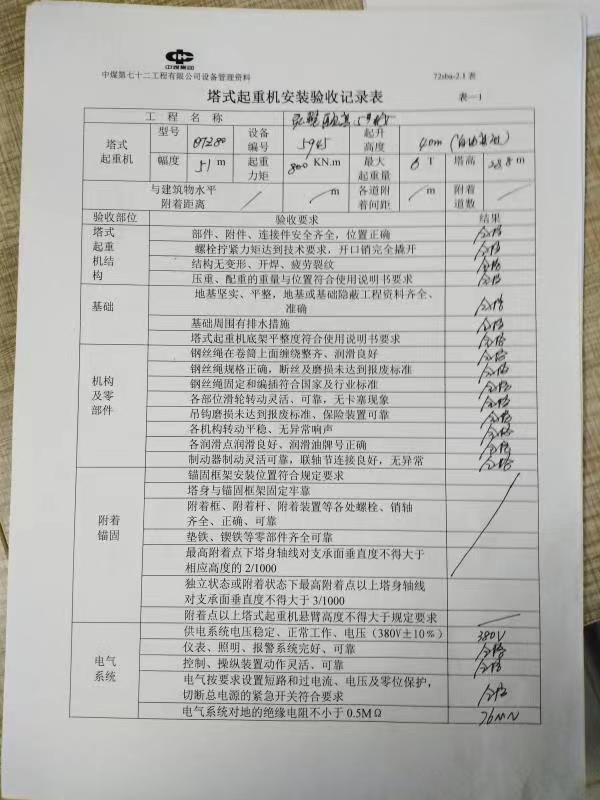 中煤集团
中煤第七十二工程有限公司设备管理资料 72sba-2.1 表
塔式起重机安装验收记录表 表—1
工 程 名 称
塔式起重机 型号 QTZ80 设备编号 5945 起升高度 40m
幅度 51 m 起重力矩 800 KN.m 最大起重量 6 T 塔高 m
与建筑物水平附着距离 / m 各道附着间距 / m 附着道数 /
验收部位 验收要求 结果
塔式起重机结构 部件、附件、连接件安全齐全，位置正确 合格
螺栓拧紧力矩达到技术要求，开口销完全撬开 合格
结构无变形、开焊、疲劳裂纹 合格
压重、配重的重量与位置符合使用说明书要求 合格
基础 地基坚实、平整，地基或基础隐蔽工程资料齐全、准确 合格
基础周围有排水措施 合格
塔式起重机底架平整度符合使用说明书要求 合格
机构及零部件 钢丝绳在卷筒上面缠绕整齐、润滑良好 合格
钢丝绳规格正确，断丝及磨损未达到报废标准 合格
钢丝绳固定和编插符合国家及行业标准 合格
各部位滑轮转动灵活、可靠，无卡塞现象 合格
吊钩磨损未达到报废标准、保险装置可靠 合格
各机构转动平稳、无异常响声 合格
各润滑点润滑良好、润滑油牌号正确 合格
制动器制动灵活可靠，联轴节连接良好，无异常 合格
附着锚固 锚固框架安装位置符合规定要求
塔身与锚固框架固定牢靠
附着框、附着杆、附着装置等各处螺栓、销轴齐全、正确、可靠
垫铁、锲铁等零部件齐全可靠
最高附着点下塔身轴线对支承面垂直度不得大于相应高度的 2/1000
独立状态或附着状态下最高附着点以上塔身轴线对支承面垂直度不得大于 3/1000
附着点以上塔式起重机悬臂高度不得大于规定要求
电气系统 供电系统电压稳定、正常工作、电压（380V±10%） 380V
仪表、照明、报警系统完好、可靠 合格
控制、操纵装置动作灵活、可靠 合格
电气按要求设置短路和过电流、电压及零位保护，切断总电源的紧急开关符合要求 合格
电气系统对地的绝缘电阻不小于 0.5MΩ